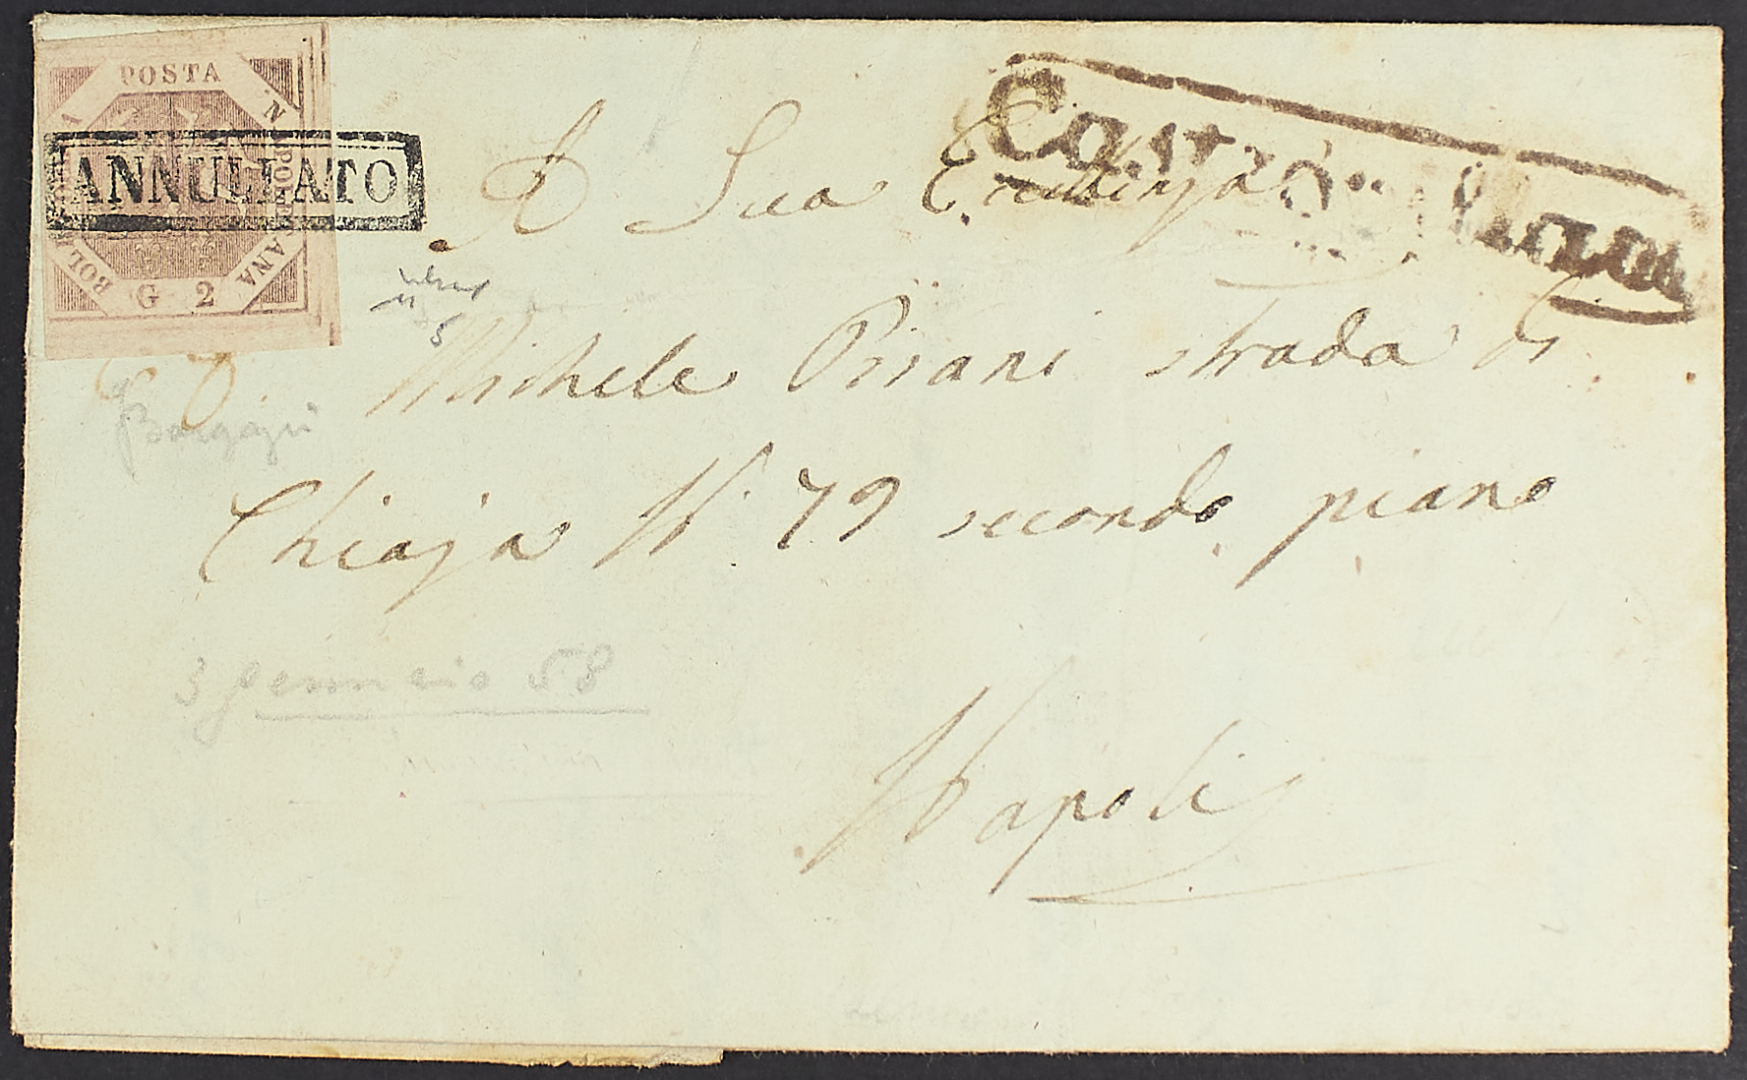 POSTA
NAPOLETANA
BOLLO DELLA
G 2
ANNULLATO
A Sua Eccellenza
Michele Pisani strada di
Chiaja N. 79 secondo piano
3 gennaio 58
Napoli